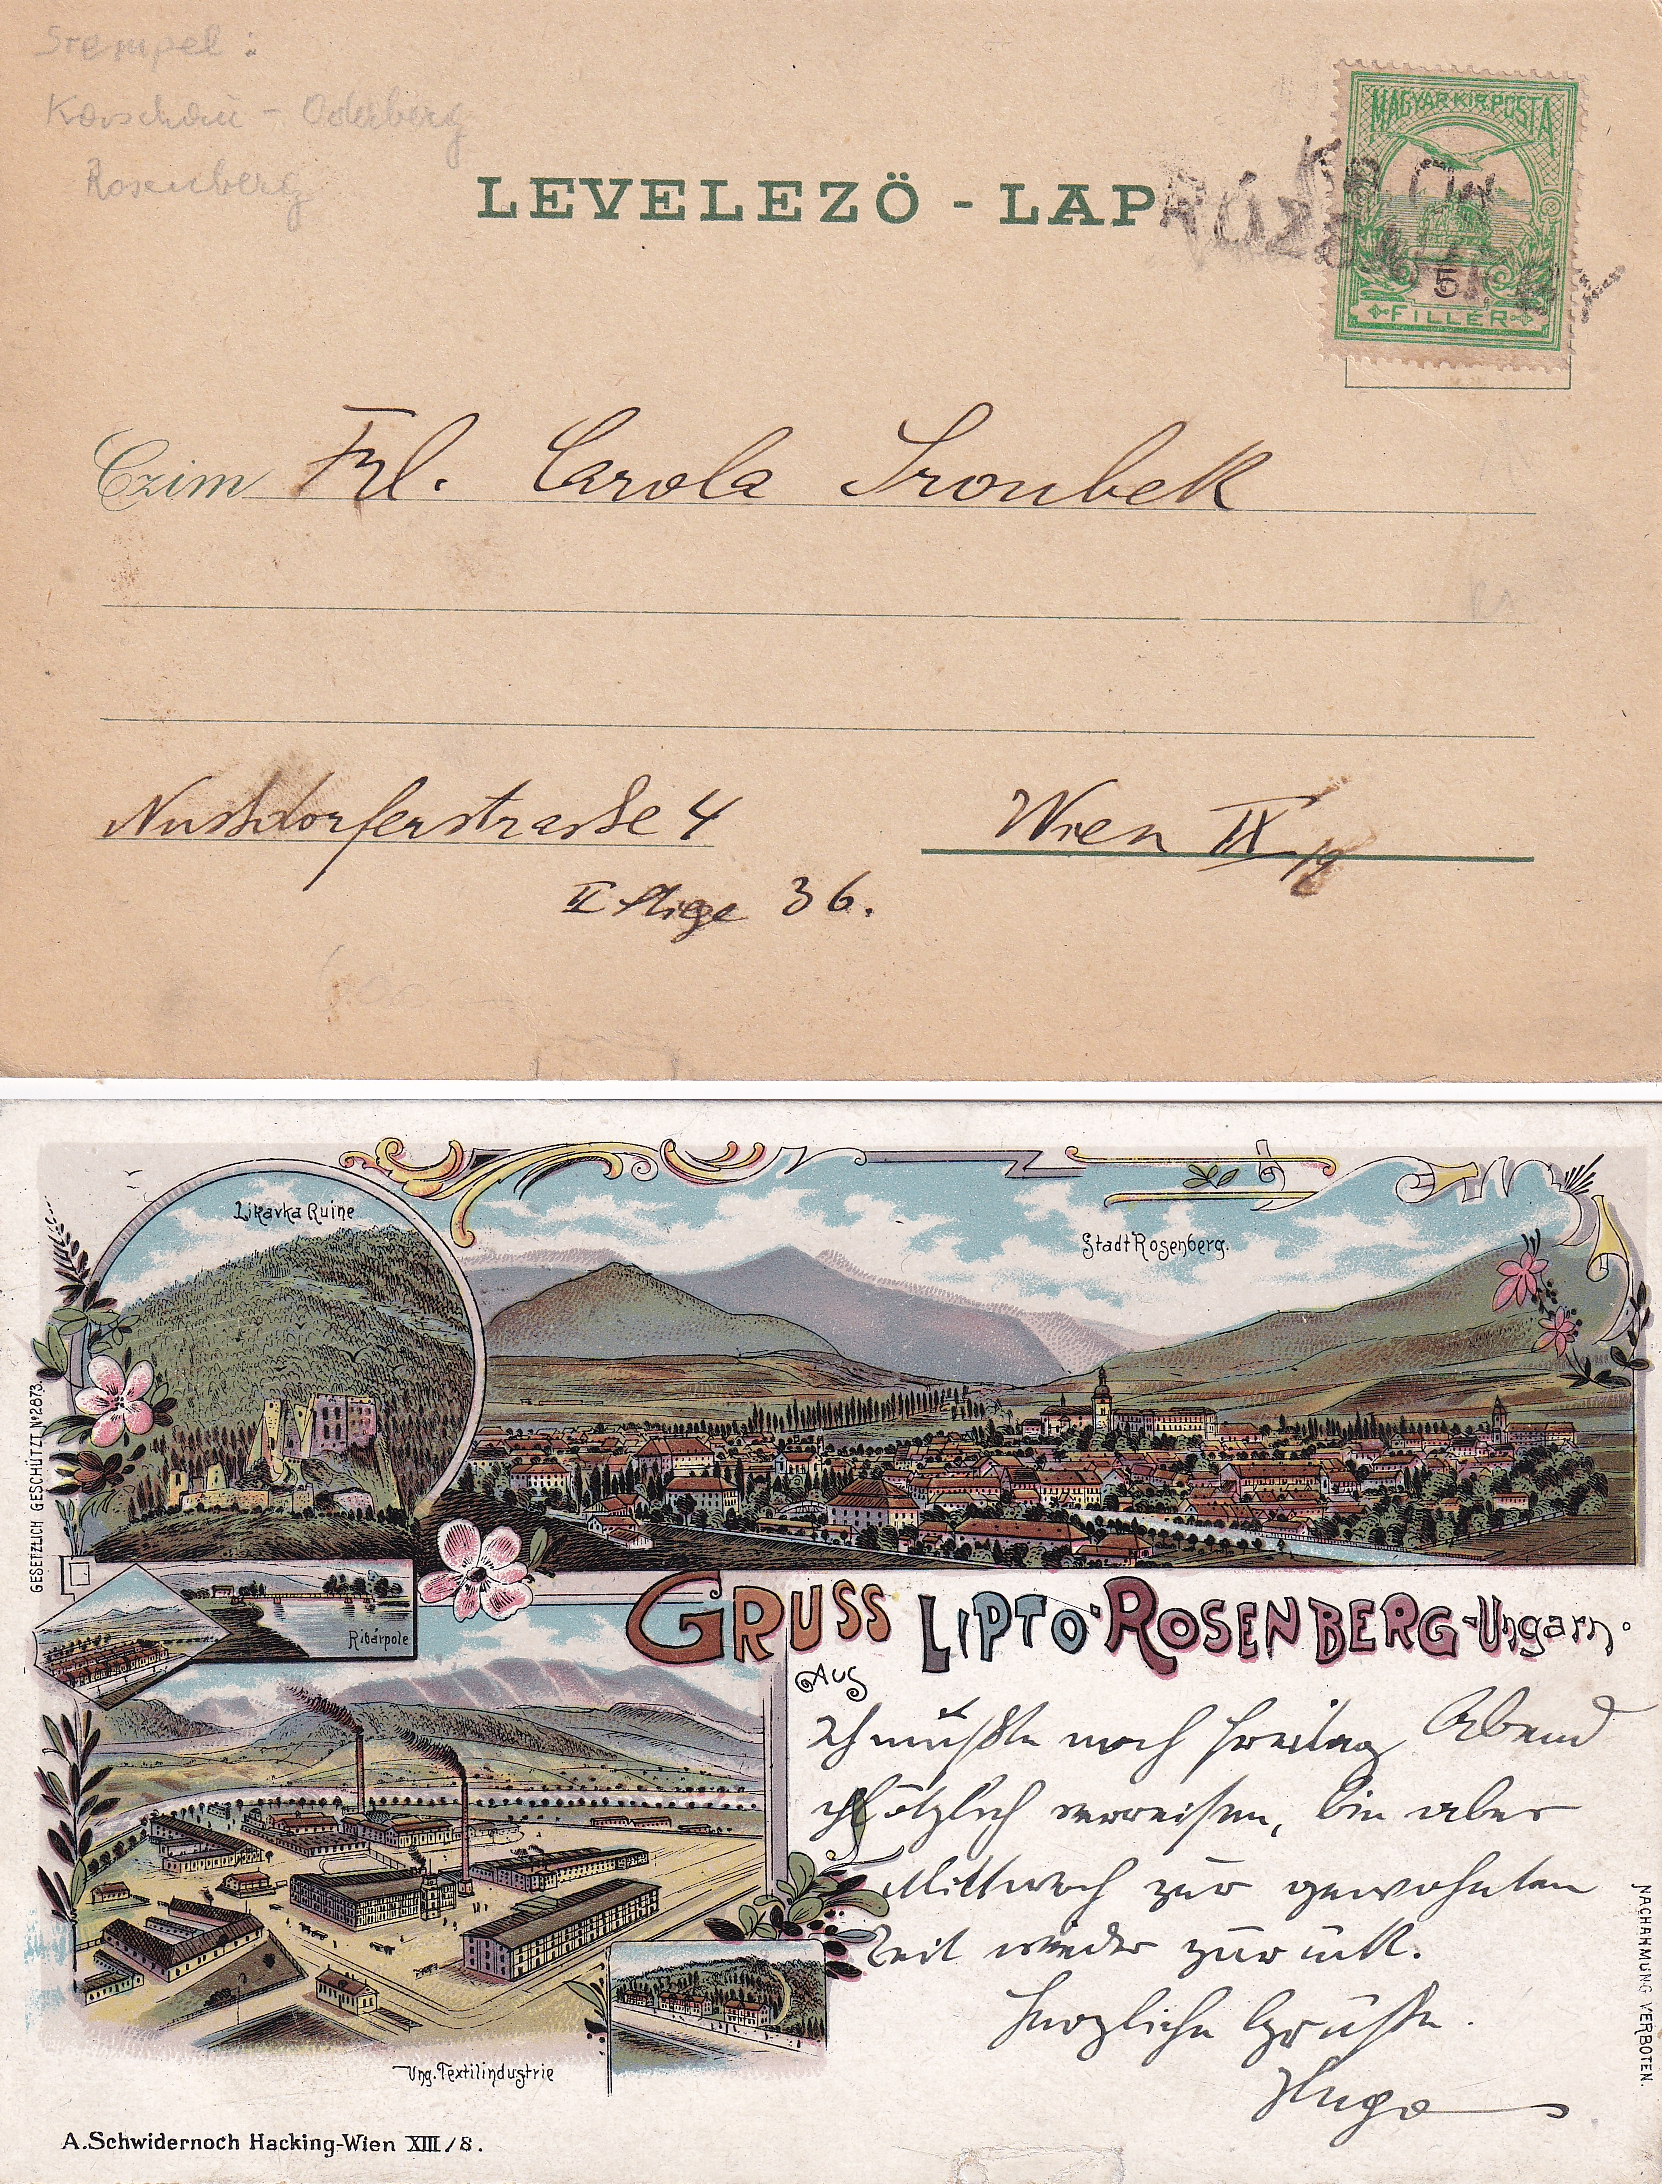 Stempel:
Kaschau - Oderberg
Rosenberg
MAGYAR KIR. POSTA
LEVELEZŐ - LAP
5
FILLÉR
Czim Frl. Carola Sroubek
Nussdorferstrasse 4
Wien IX
II Stiege 36.
Likavka Ruine
Stadt Rosenberg.
GESETZLICH GESCHÜTZT No 2873.
Ribárpole
GRUSS
AUS
LIPTÓ-ROSENBERG-Ungarn.
Ich mußte noch Freitag Abend
plötzlich verreisen, bin aber
Mittwoch zur gewohnten
Zeit wieder zurück.
Herzliche Grüße.
Hugo
Ung. Textilindustrie
NACHAHMUNG VERBOTEN.
A. Schwidernoch Hacking-Wien XIII/8.